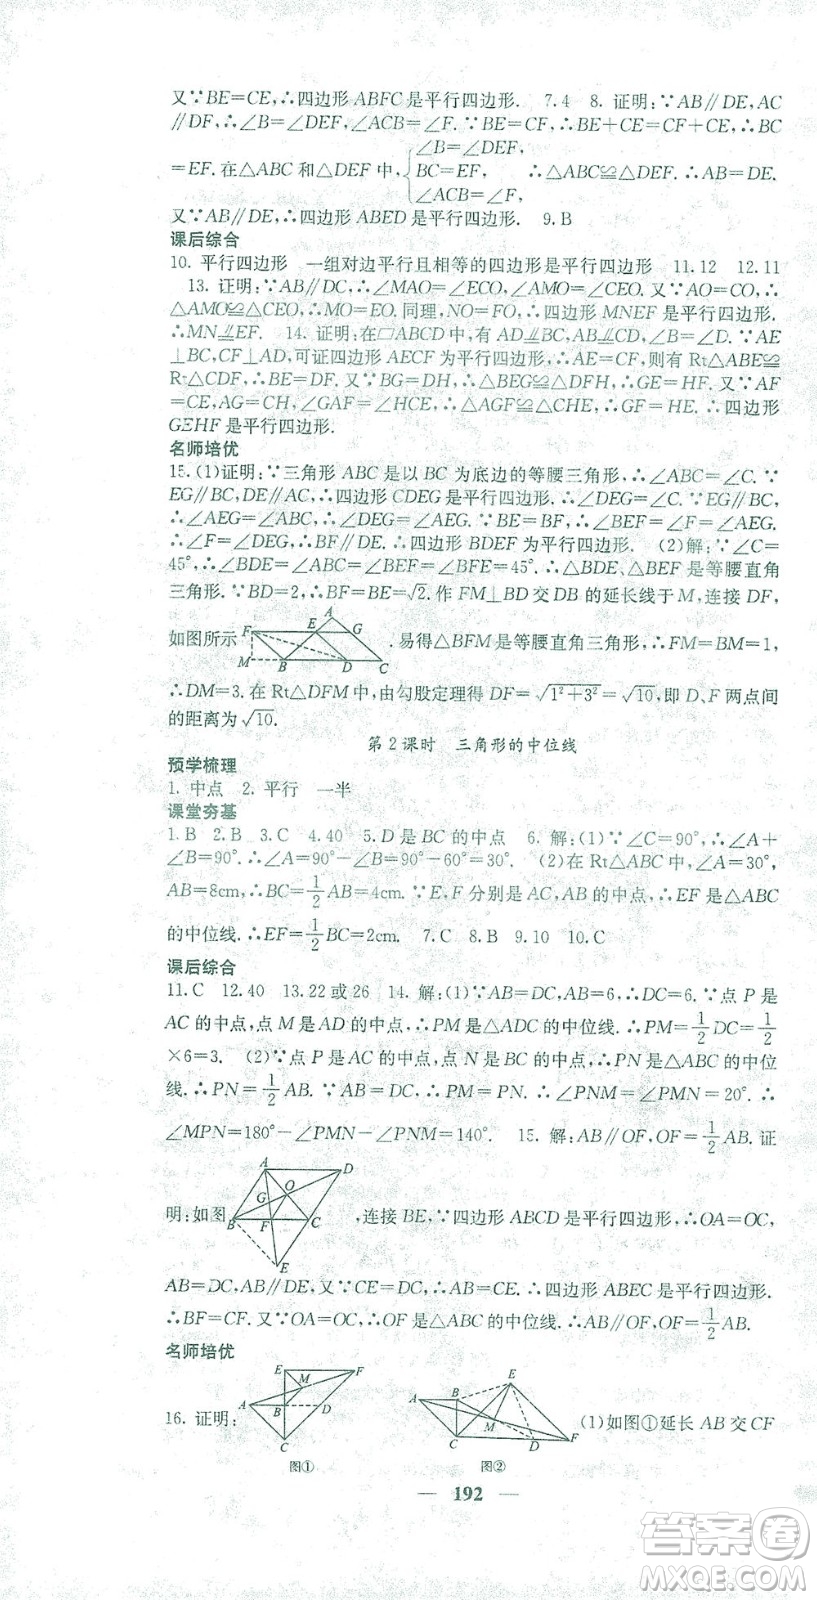 又∵BE=CE,∴四边形 ABFC 是平行四边形.　7.4　8. 证明:∵AB∥DE,AC
∥DF,∴∠B=∠DEF,∠ACB=∠F.∵BE=CF,∴BE+CE=CF+CE,∴BC
∠B=∠DEF,
=EF. 在△ABC 和△DEF 中,{BC=EF,　∴△ABC≌△DEF. ∴AB=DE.
∠ACB=∠F,
又∵AB∥DE,∴四边形 ABED 是平行四边形.　9.B
课后综合
10. 平行四边形　一组对边平行且相等的四边形是平行四边形　11.12　12.11
13. 证明:∵AB∥DC,∴∠MAO=∠ECO,∠AMO=∠CEO. 又∵AO=CO,∴
△AMO≌△CEO,∴MO=EO. 同理,NO=FO,∴四边形 MNEF 是平行四边形.
∴MN⫽EF.　14. 证明:在▱ABCD 中,有 AD⫽BC,AB=CD,∠ABE=∠CDF. ∵AE
⊥BC,CF⊥AD,可证四边形 AECF 为平行四边形,∴AE=CF. 则有 Rt△ABE≌
Rt△CDF,∴BE=DF. 又∵BG=DH,∴△BEG≌△DFH,∴GE=HF. 又∵AF
=CE,AG=CH,∠GAF=∠HCE,∴△AGF≌△CHE,∴GF=HE. ∴四边形
GEHF 是平行四边形.
名师培优
15. (1)证明:∵三角形 ABC 是以 BC 为底边的等腰三角形,∴∠ABC=∠C. ∵
EG∥BC,DE∥AC,∴四边形 CDEG 是平行四边形,∴∠DEG=∠C. ∵EG∥BC,
∴∠AEG=∠ABC,∴∠DEG=∠AEG. ∵BE=BF,∴∠BEF=∠F=∠AEG.
∴∠F=∠DEG,∴BF∥DE. ∴四边形 BDEF 为平行四边形.　(2)解:∵∠C=
45°,∴∠BDE=∠ABC=∠BEF=∠BFE=45°. ∴△BDE、△BEF 是等腰直角
三角形. ∵BD=2,∴BF=BE=√2. 作 FM⊥BD 交 DB 的延长线于 M,连接 DF,
如图所示 F E A G M B D C . 易得△BFM 是等腰直角三角形,∴FM=BM=1,
∴DM=3. 在 Rt△DFM 中,由勾股定理得 DF=√(1²+3²)=√10,即 D、F 两点间
的距离为√10.
第 2 课时　三角形的中位线
预学梳理
1. 中点　2. 平行　一半
课堂夯基
1.B　2.B　3.C　4.40　5.D 是 BC 的中点　6. 解:(1)∵∠C=90°,∴∠A+
∠B=90°. ∴∠A=90°-∠B=90°-60°=30°.　(2)在 Rt△ABC 中,∠A=30°,
AB=8cm,∴BC=1/2AB=4cm. ∵E,F 分别是 AC,AB 的中点,∴EF 是△ABC
的中位线. ∴EF=1/2BC=2cm.　7.C　8.B　9.10　10.C
课后综合
11.C　12.40　13.22 或 26　14. 解:(1)∵AB=DC,AB=6,∴DC=6. ∵点 P 是
AC 的中点,点 M 是 AD 的中点,∴PM 是△ADC 的中位线. ∴PM=1/2DC=1/2
×6=3.　(2)∵点 P 是 AC 的中点,点 N 是 BC 的中点,∴PN 是△ABC 的中位
线. ∴PN=1/2AB. ∵AB=DC,∴PM=PN. ∴∠PNM=∠PMN=20°. ∴
∠MPN=180°-∠PMN-∠PNM=140°.　15. 解:AB∥OF,OF=1/2AB. 证
明:如图 A D G O B F C E ,连接 BE,∵四边形 ABCD 是平行四边形,∴OA=OC,
AB=DC,AB∥DE,又∵CE=DC,∴AB=CE. ∴四边形 ABEC 是平行四边形.
∴BF=CF. 又∵OA=OC,∴OF 是△ABC 的中位线. ∴AB∥OF,OF=1/2AB.
名师培优
16. 证明: E F M A B D C 图① A B E M C D F 图② (1)如图①延长 AB 交 CF
192
答案圈
MXQE.COM